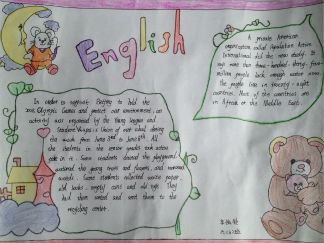 English
A private American
organization called Population Action
International did the new study. It
says more than three-hundred-thirty-five-
million people lack enough water now.
The people live in twenty-eight
countries. Most of the countries are
in Africa or the Middle East.
In order to support Beijing to hold the
Olympic Games and protect our environment, an
activity was organized by the Young league and
Students' Union of our school during
the week from June 2nd to June 8th. All
the students in the senior grades took active
part in it. Some students cleaned the playground,
watered the young trees and flowers, and removed
weeds. Some students collected waste paper,
old books, empty cans and old toys. They
had them sorted and sent them to the
recycling center.